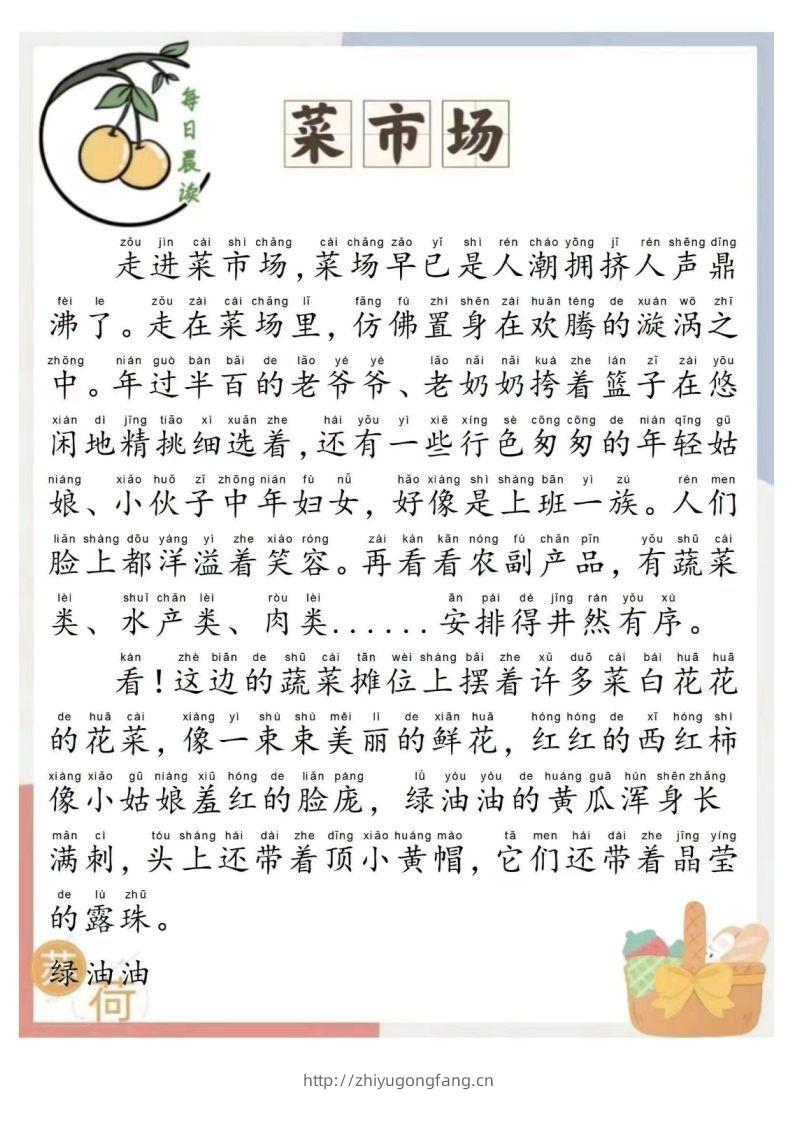 每日晨读
菜市场
zǒu jìn cài shì chǎng cài chǎng zǎo yǐ shì rén cháo yōng jǐ rén shēng dǐng
走进菜市场，菜场早已是人潮拥挤人声鼎
fèi le zǒu zài cài chǎng lǐ fǎng fú zhì shēn zài huān téng de xuán wō zhī
沸了。走在菜场里，仿佛置身在欢腾的漩涡之
zhōng nián guò bàn bǎi de lǎo yé yé lǎo nǎi nǎi kuà zhe lán zǐ zài yōu
中。年过半百的老爷爷、老奶奶挎着篮子在悠
xián dì jīng tiāo xì xuǎn zhe hái yǒu yì xiē xíng sè cōng cōng de nián qīng gū
闲地精挑细选着，还有一些行色匆匆的年轻姑
niáng xiǎo huǒ zǐ zhōng nián fù nǚ hǎo xiàng shì shàng bān yì zú rén men
娘、小伙子中年妇女，好像是上班一族。人们
liǎn shàng dōu yáng yì zhe xiào róng zài kàn kān nóng fù chǎn pǐn yǒu shū cài
脸上都洋溢着笑容。再看看农副产品，有蔬菜
lèi shuǐ chǎn lèi ròu lèi ān pái dé jǐng rán yǒu xù
类、水产类、肉类......安排得井然有序。
kàn zhè biān de shū cài tān wèi shàng bǎi zhe xǔ duō cài bái huā huā
看！这边的蔬菜摊位上摆着许多菜白花花
de huā cài xiàng yì shù shù měi lì de xiān huā hóng hóng de xī hóng shì
的花菜，像一束束美丽的鲜花，红红的西红柿
xiàng xiǎo gū niáng xiū hóng de liǎn páng lǜ yóu yóu de huáng guā hún shēn zhǎng
像小姑娘羞红的脸庞，绿油油的黄瓜浑身长
mǎn cì tóu shàng hái dài zhe dǐng xiǎo huáng mào tā men hái dài zhe jīng yíng
满刺，头上还带着顶小黄帽，它们还带着晶莹
de lù zhū
的露珠。
绿油油
荷
http://zhiyugongfang.cn